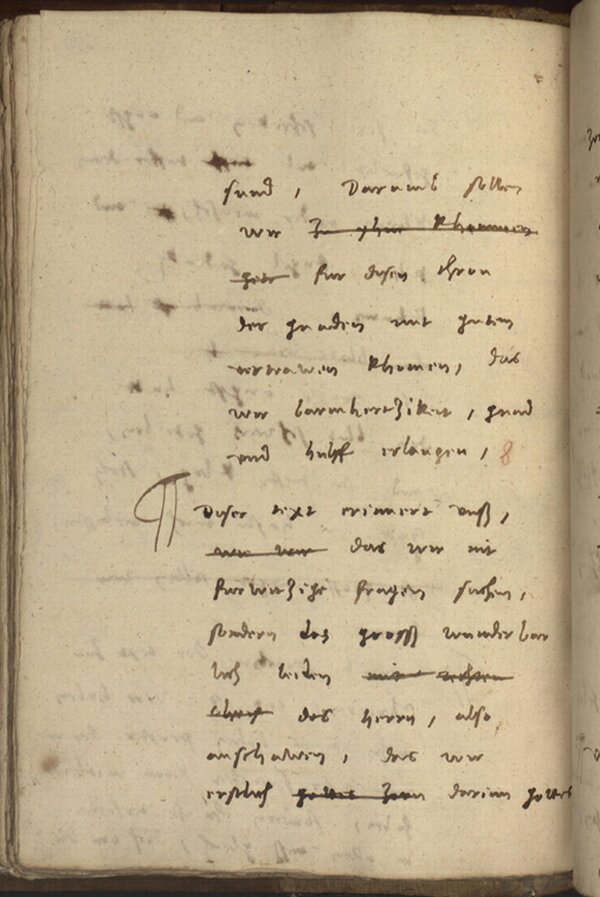 sund, Darumb sollen
wir zu yhm khommen
fur disen thron
der gnaden mit gutem
vertrawen khomen, das
wir barmhertzikeit, gnad
und hulff erlangen,
¶ Diser text erinnert unß,
wie wir das wir nit
furwitzige fragen suchen,
sondern das groß wunderbar
lich leiden mit rechtem
des herrn, also
anschawen, das wir
erstlich gottes zorn darinn gottes